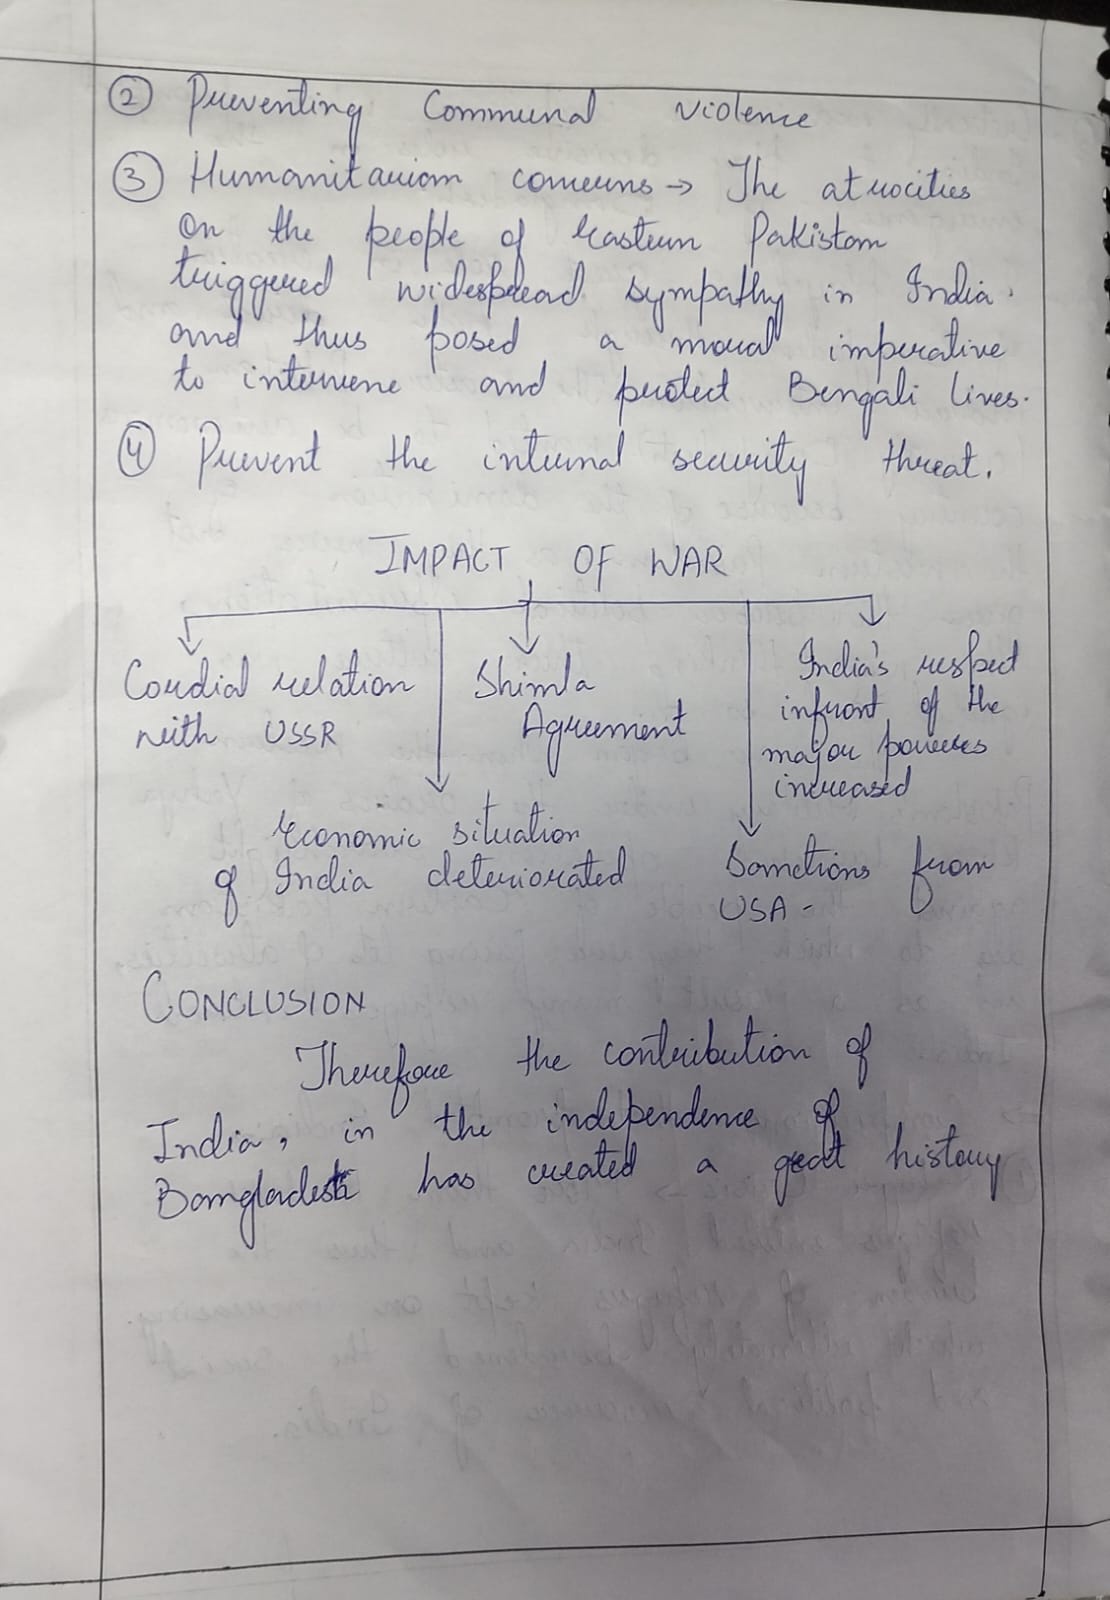 ② Preventing Communal violence
③ Humanitarian concerns → The atrocities
on the people of Eastern Pakistan
triggered widespread sympathy in India.
and thus posed a moral imperative
to intervene and protect Bengali lives.
④ Prevent the internal security threat.
IMPACT OF WAR
Cordial relation
with USSR
Shimla
Agreement
India's respect
infront of the
major powers
increased
Economic situation
of India deteriorated
Sanctions from
USA -
CONCLUSION
Therefore the contribution of
India, in the independence of
Bangladesh has created a great history